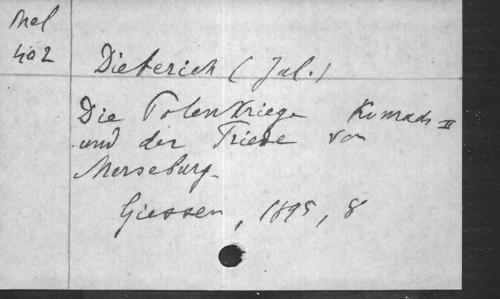 Mel
402
Dieterich (Jul.)
Die Polenkriege Konrads II
und der Friede von
Merseburg.
Giessen, 1895, 8